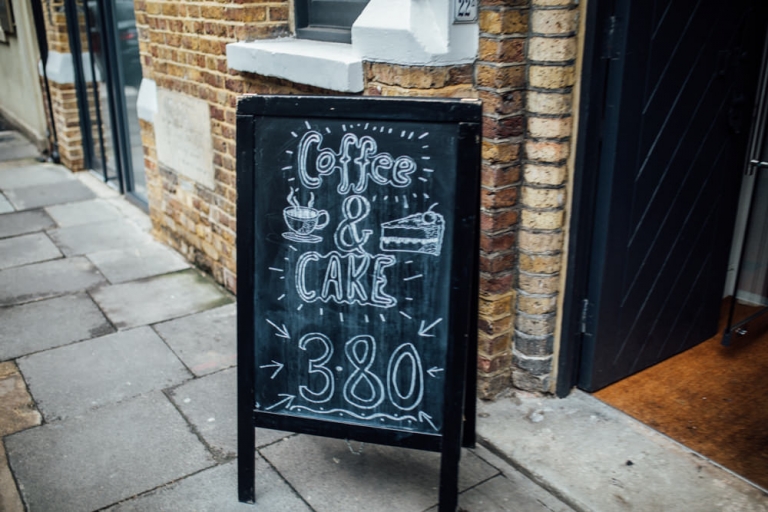 22a
Coffee
&
CAKE
3.80